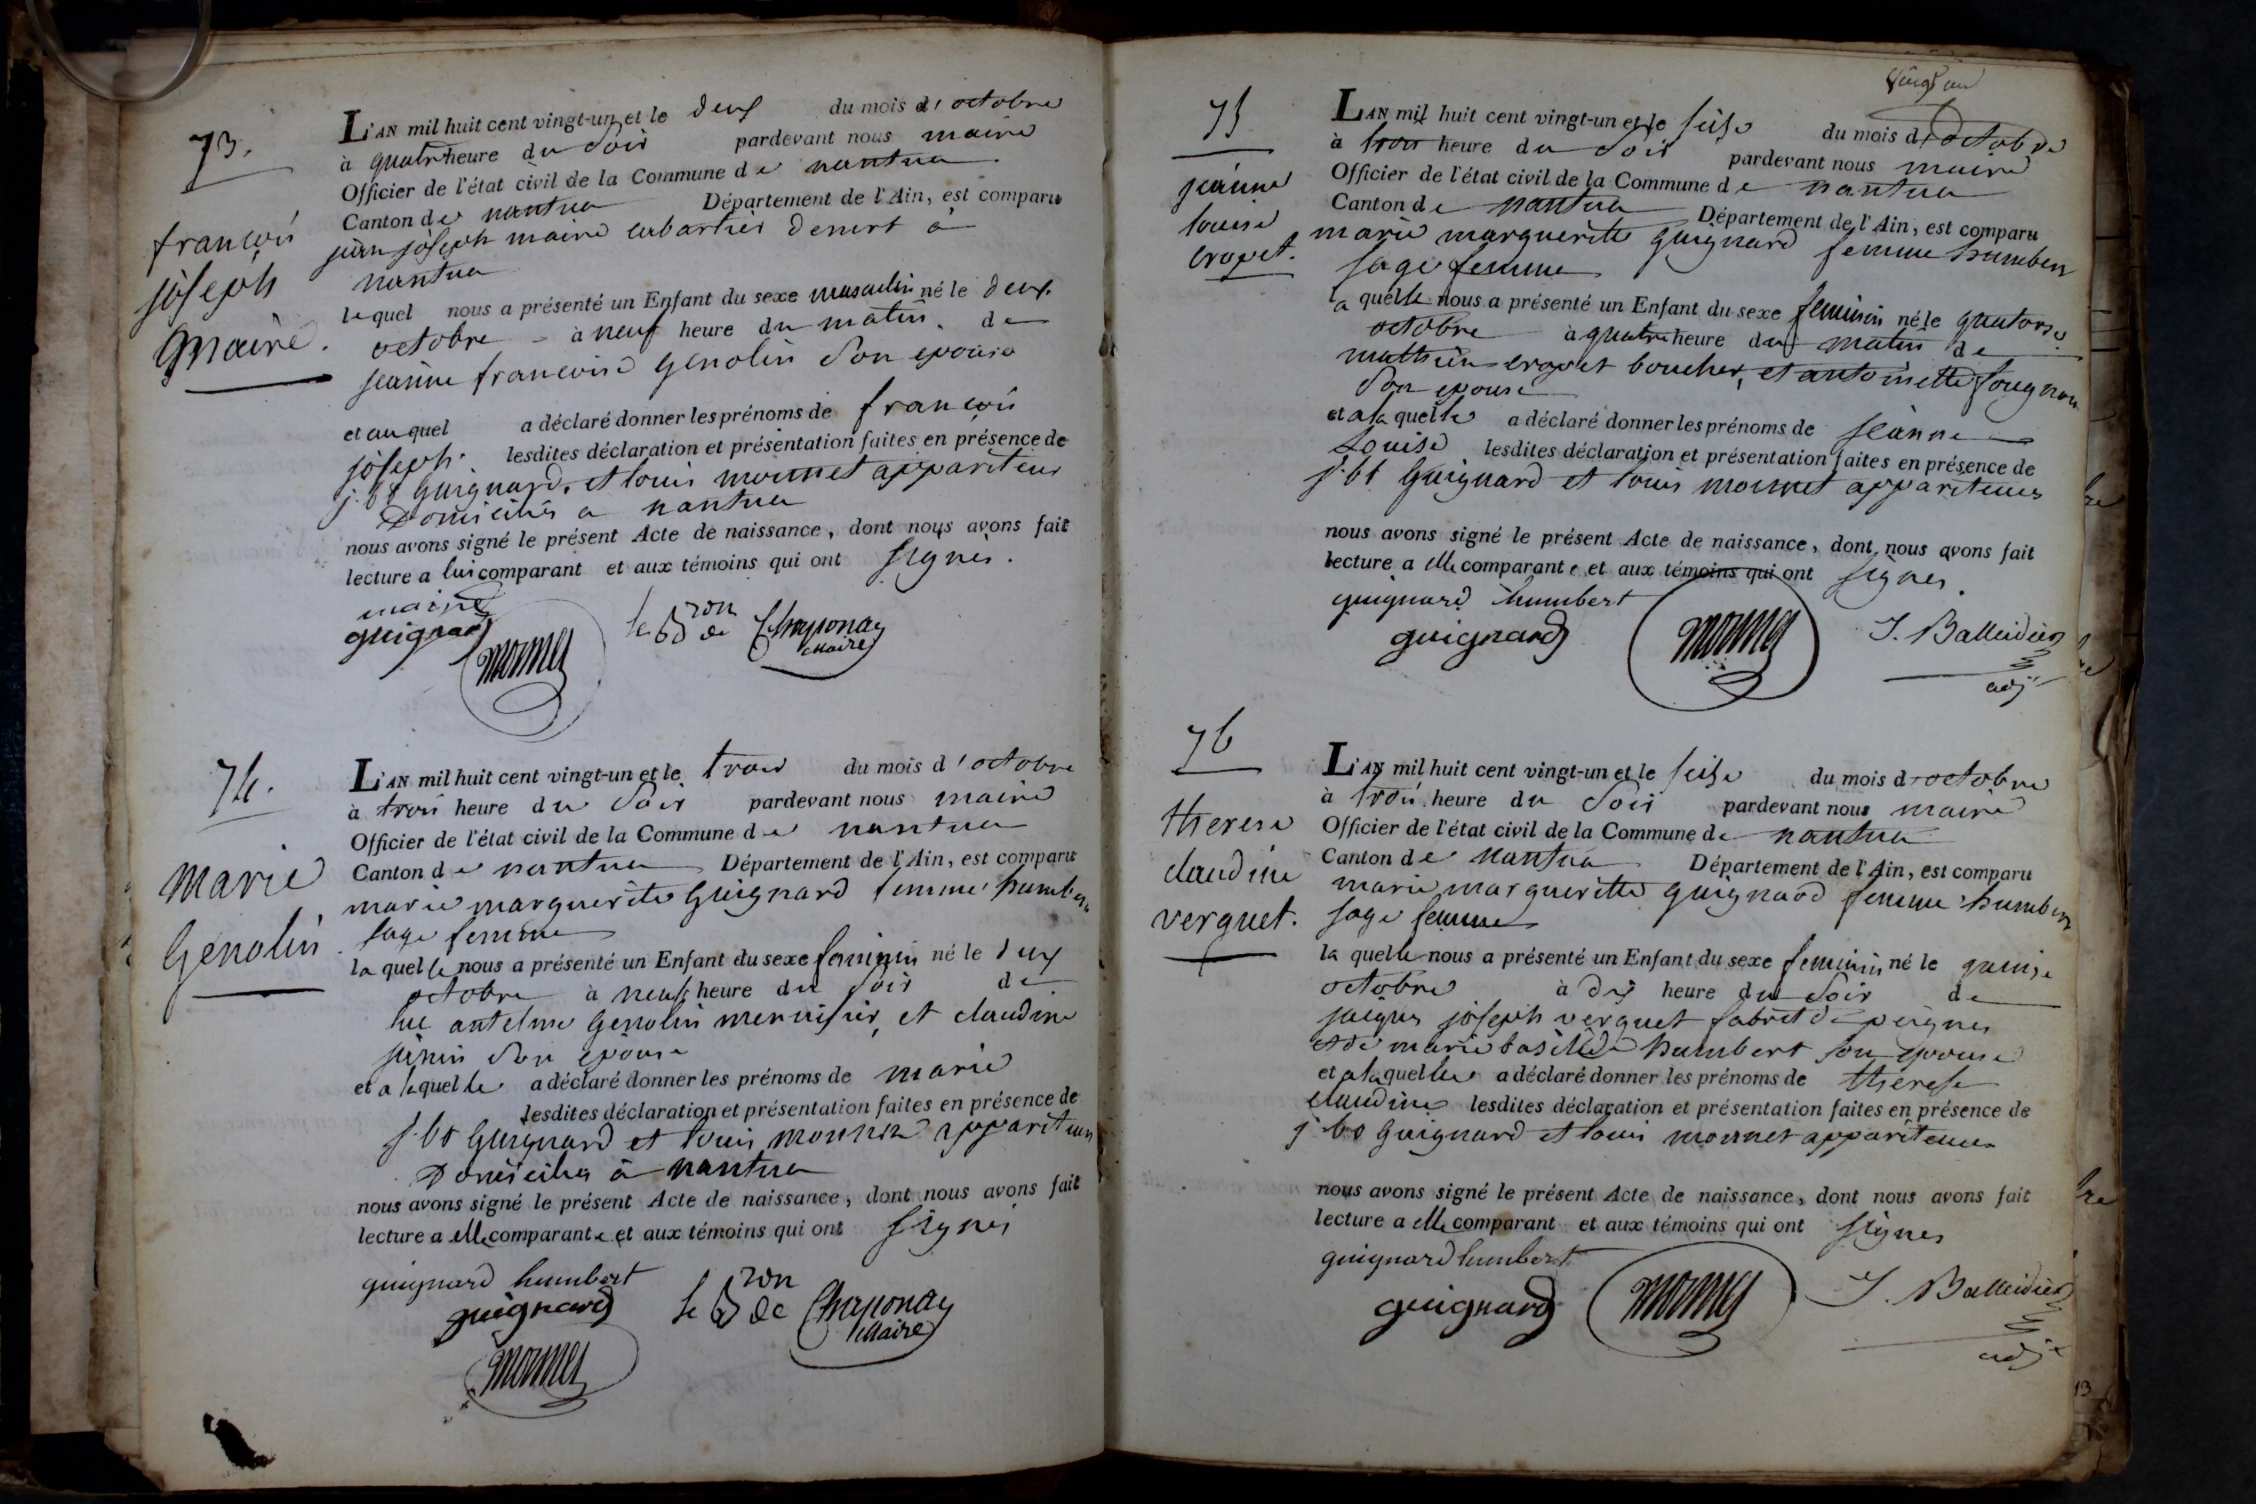 73.
françois
joseph
Maire.
L'AN mil huit cent vingt-un et le deux du mois d'octobre
à quatre heure du Soir pardevant nous maire
Officier de l'état civil de la Commune de nantua
Canton de nantua Département de l'Ain, est comparu
jean joseph maire cabartier demrt à
nantua
lequel nous a présenté un Enfant du sexe masculin né le deux
octobre à neuf heure du matin de
jeanne francoise Genolin Son epouse
et auquel a déclaré donner les prénoms de françois
joseph. lesdites déclaration et présentation faites en présence de
j. bt Guignard, et louis monnet appariteurs
Domiciliés a nantua
nous avons signé le présent Acte de naissance, dont nous avons fait
lecture a lui comparant et aux témoins qui ont signés.
maire
guignard
monnet
le Bron de Chaponay
Maire
74.
Marie
Genolin
L'AN mil huit cent vingt-un et le trois du mois d'octobre
à trois heure du Soir pardevant nous maire
Officier de l'état civil de la Commune de nantua
Canton de nantua Département de l'Ain, est comparu
marie marguerite Guignard femme humbert
sage femme
la quelle nous a présenté un Enfant du sexe feminin né le deux
octobre à neuf heure du Soir de
luc antelme Genolin menuisier, et claudine
Son epouse
et a laquelle a déclaré donner les prénoms de marie
lesdites déclaration et présentation faites en présence de
j. bt Guignard et louis monnet appariteurs
Domiciliés à nantua
nous avons signé le présent Acte de naissance, dont nous avons fait
lecture a elle comparante et aux témoins qui ont signés
guignard humbert
guignard
monnet
le Bron de Chaponay
Maire
vingt un
75
jeanne
louise
crozet.
L'AN mil huit cent vingt-un et le seize du mois d'octobre
à trois heure du Soir pardevant nous maire
Officier de l'état civil de la Commune de nantua
Canton de nantua Département de l'Ain, est comparu
marie marguerite guignard femme humbert
sage femme
la quelle nous a présenté un Enfant du sexe feminin né le quatorze
octobre à quatre heure du matin de
mathieu crozet boucher, et antoinette
Son epouse
et a la quelle a déclaré donner les prénoms de jeanne
Louise lesdites déclaration et présentation faites en présence de
j. bt Guignard et louis monnet appariteurs
nous avons signé le présent Acte de naissance, dont nous avons fait
lecture a elle comparante et aux témoins qui ont signés.
guignard humbert
guignard
monnet
J. Balleidier
adj
76
therese
claudine
verguet.
L'AN mil huit cent vingt-un et le seize du mois d'octobre
à trois heure du Soir pardevant nous maire
Officier de l'état civil de la Commune de nantua
Canton de nantua Département de l'Ain, est comparu
marie marguerite guignard femme humbert
sage femme
la quelle nous a présenté un Enfant du sexe feminin né le quinze
octobre à dix heure du Soir de
jacques joseph verguet fabrict de peignes
et de marie basilide humbert son epouse
et a laquelle a déclaré donner les prénoms de therese
claudine lesdites déclaration et présentation faites en présence de
j bt Guignard et louis monnet appariteurs
nous avons signé le présent Acte de naissance, dont nous avons fait
lecture a elle comparant et aux témoins qui ont signés
guignard humbert
guignard
monnet
J. Balleidier
adj